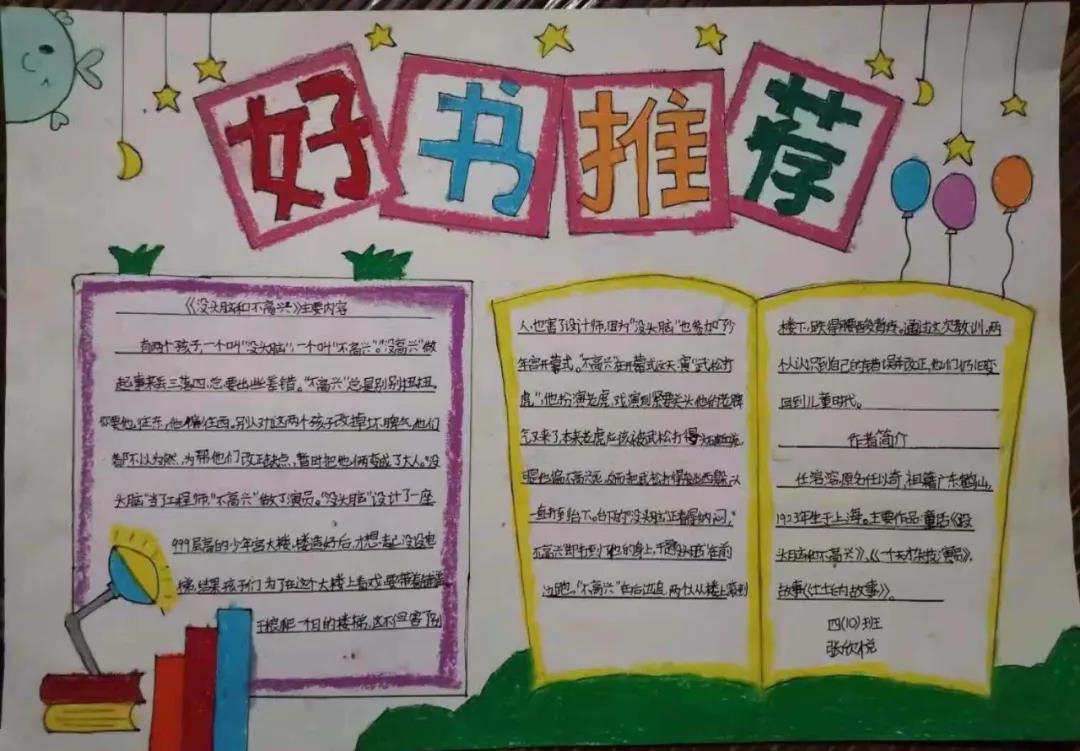 好书推荐
《没头脑和不高兴》主要内容
有两个孩子,一个叫"没头脑",一个叫"不高兴"。"没高兴"做
起事来丢三落四,总要出些差错。"不高兴"总是别别扭扭,
你要他往东,他偏往西。别人对这两个孩子改掉坏脾气,他们
都不以为然,为帮他们改正缺点,暂时把他俩变成了大人。"没
头脑"当了工程师,"不高兴"做了演员。"没头脑"设计了一座
999层高的少年宫大楼,楼造好后,才想起没设电
梯,结果孩子们为了在这个大楼上看戏,要带着铺盖
干粮爬一个月的楼梯,这不但害了别
人,也害了设计师,因为"没头脑"也参加了少
年宫开幕式。"不高兴"在开幕式这天演"武松打
虎",他扮演老虎,戏演到紧要关头他的老脾
气又来了,本来老虎应该被武松打得
一直打到台下。台下的"没头脑"正看得纳闷,
不高兴即打到了他的身上,
边跑,"不高兴"在后边追,两个人从楼上滚到
楼下,跌得腰酸背疼。通过这次教训,两
个人认识到自己的错误并改正,他们仍旧变
回到儿童时代。
作者简介
任溶溶,原名任以奇,祖籍广东鹤山,
1923年生于上海。主要作品:童话《没
头脑和不高兴》,《一个天才杂技演员》,
故事《土土的故事》。
四(10)班
张欣悦